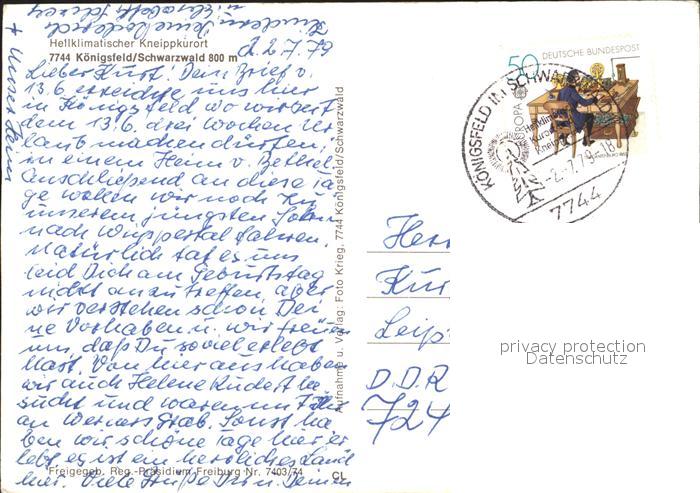 Heilklimatischer Kneippkurort
7744 Königsfeld/Schwarzwald 800 m
d. 2.7.79
Lieber Kurt! Dein Brief v.
13.6. erreichte uns hier
in Königsfeld wo wir seit
dem 13.6. drei Wochen Ur
laub machen dürfen,
in einem Heim v. Bethel.
Anschließend an diese Ta
ge wollen wir noch zu
unserem jüngsten Sohn
nach Wuppertal fahren.
Natürlich tat es uns
leid Dich am Geburtstag
nicht anzutreffen, aber
wir verstehen schon Dei
ne Vorhaben u. wir freuen
uns, daß Du soviel erlebt
hast. Von hier aus haben
wir auch Helene besucht
und waren
an Werners Grab. Sonst ha
ben wir schöne Tage hier er
lebt es ist ein herrliches Land
hier. Viele Grüße
Freigegeb. Reg.-Präsidium Freiburg Nr. 7403/74
CL
Aufnahme u. Verlag: Foto Krieg, 7744 Königsfeld/Schwarzwald
50 DEUTSCHE BUNDESPOST
EUROPA
KÖNIGSFELD IM SCHWARZWALD
-2.-7.79-18
7744
Herr
Kur
Leip
D.D.R
724
privacy protection
Datenschutz